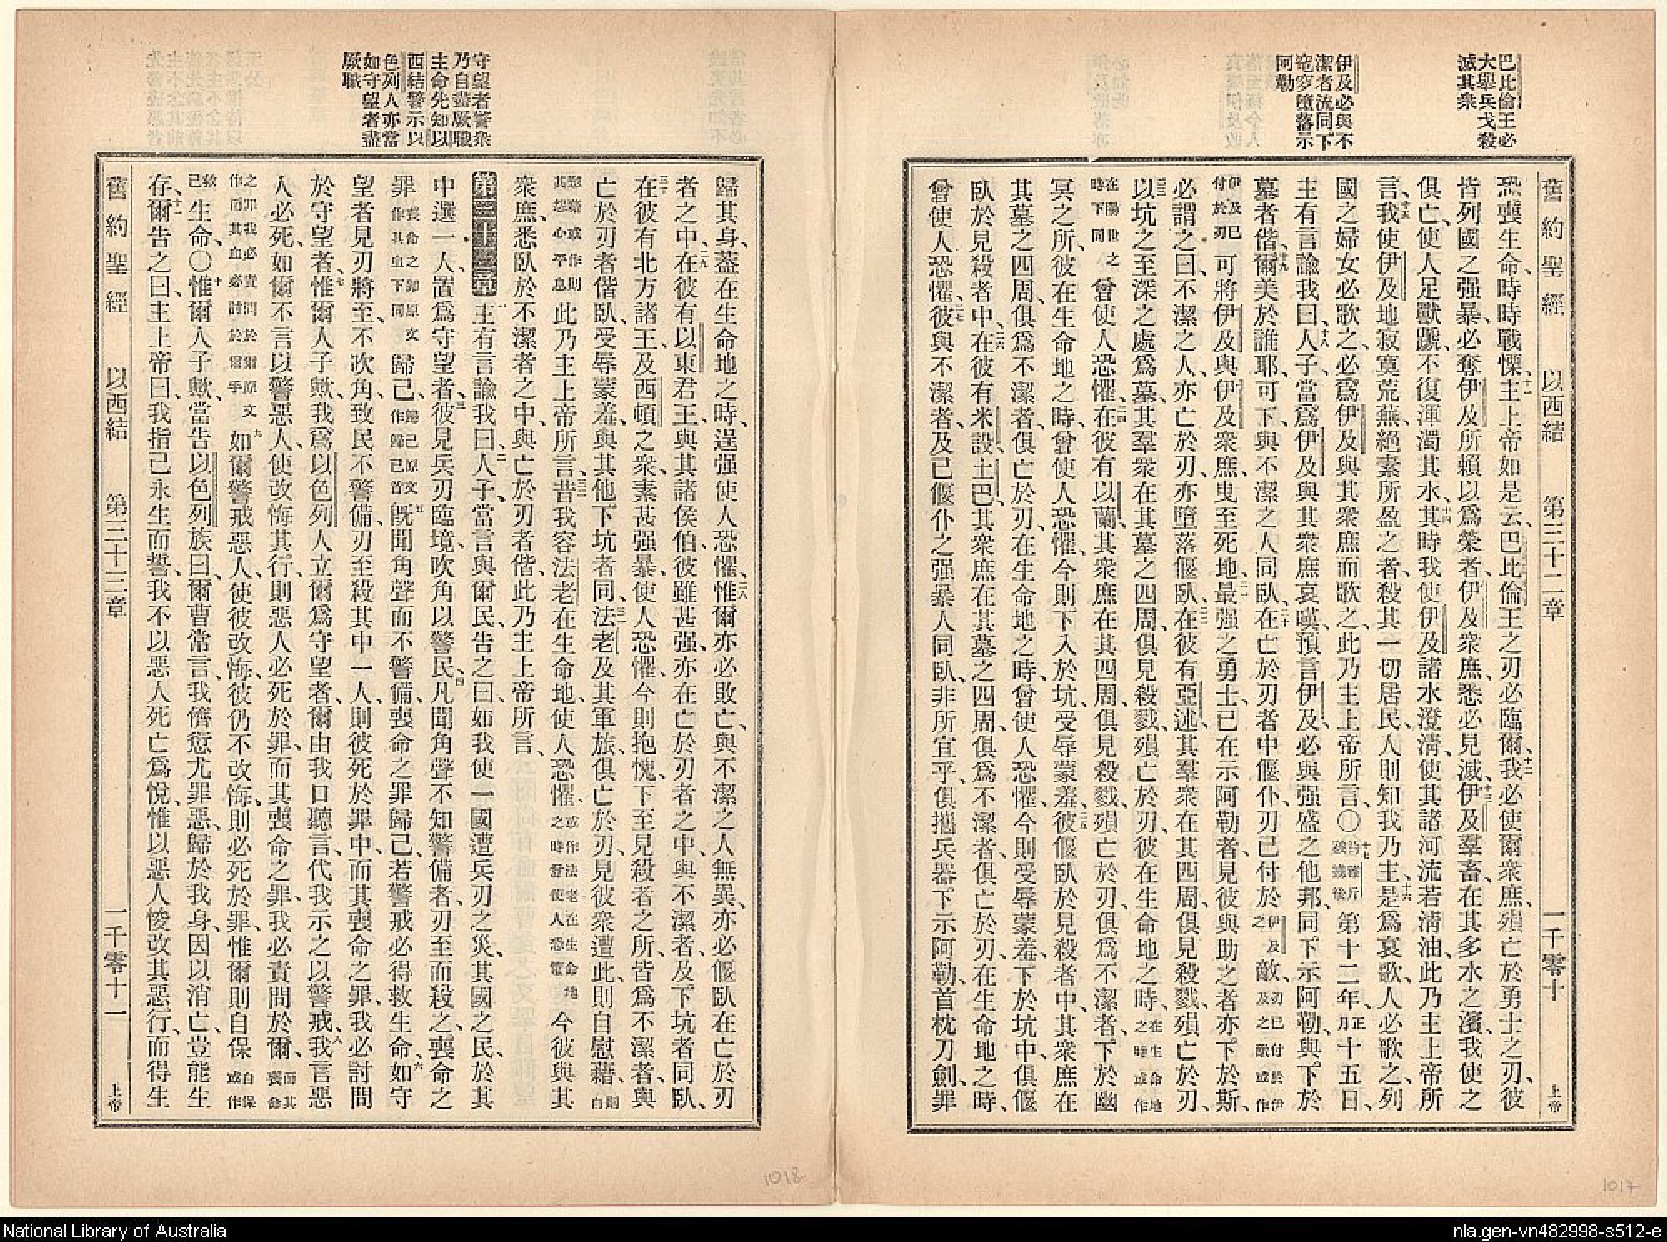 巴比倫王必
大舉兵戈殺
滅其衆
伊及必與不
潔者流同下
窀穸墮落示
阿勒
舊約聖經 以西結 第三十二章 一千零十 上帝
恐喪生命時時戰慄、十一主上帝如是云、巴比倫王之刃必臨爾、十二我必使爾衆庶殞亡於勇士之刃、彼
皆列國之强暴、必奪伊及所賴以爲榮者、伊及衆庶悉必見滅、十三伊及羣畜在其多水之濱、我使之
俱亡、使人足獸蹏不復渾濁其水、十四其時我使伊及諸水澄淸、使其諸河流若淸油、此乃主上帝所
言、十五我使伊及地寂寞荒蕪、絕素所盈之者、殺其一切居民、人則知我乃主、十六是爲哀歌、人必歌之、列
國之婦女必歌之、必爲伊及與其衆庶而歌之、此乃主上帝所言、〇十七第十二年正月十五日、
主有言諭我曰、十八人子、當爲伊及與其衆庶哀嘆、預言伊及必與强盛之他邦、同下示阿勒、與下於
墓者偕、十九爾美於誰耶、可下、與不潔之人同臥、二十在亡於刃者中偃仆、刃已付於伊及之敵、刃已付於伊及之敵或作
伊及已付於刃可將伊及與伊及衆庶、曳至死地、二一最强之勇士、已在示阿勒者、見彼與助之者、亦下於斯、
必謂之曰、不潔之人、亦亡於刃、亦墮落偃臥、二二在彼有亞述、其羣衆在其四周、俱見殺戮、殞亡於刃、
二三以坑之至深之處爲墓、其羣衆在其墓之四周、俱見殺戮、殞亡於刃、彼在生命地之時、在生命地之時或作
在陽世之時下同曾使人恐懼、二四在彼有以蘭、其衆庶在其四周、俱見殺戮、殞亡於刃、俱爲不潔者、下於幽
冥之所、彼在生命地之時、曾使人恐懼、今則下入於坑、受辱蒙羞、二五彼偃臥於見殺者中、其衆庶在
其墓之四周、俱爲不潔者、俱亡於刃、在生命地之時、曾使人恐懼、今則受辱蒙羞、下於坑中、俱偃
臥於見殺者中、二六在彼有米設土巴、其衆庶在其墓之四周、俱爲不潔者、俱亡於刃、在生命地之時、
曾使人恐懼、二七彼與不潔者、及已偃仆之强暴人同臥、非所宜乎、俱攜兵器、下示阿勒、首枕刀劍、罪
守望者警衆
乃自盡厥職
主命先知以
西結警示以
色列人亦當
如守望者盡
厥職
歸其身、蓋在生命地之時、逞强使人恐懼、二八惟爾亦必敗亡、與不潔之人無異、亦必偃臥在亡於刃
者之中、二九在彼有以東君王、與其諸侯伯、彼雖甚强、亦在亡於刃者之中、與不潔者、及下坑者同臥、
三十在彼有北方諸王、及西頓之衆、素甚强暴、使人恐懼、今則抱愧、下至見殺者之所、皆爲不潔者、與
亡於刃者偕臥、受辱蒙羞、與其他下坑者同、三一法老及其軍旅、俱亡於刃、見彼衆遭此、則自慰藉、則自
慰藉或作則其怨心平息此乃主上帝所言、三二昔我容法老在生命地、使人恐懼、或作法老在生命地之時曾使人恐懼今彼與其
衆庶、悉臥於不潔者之中、與亡於刃者偕、此乃主上帝所言、
第三十三章 一主有言諭我曰、二人子、當言與爾民、告之曰、如我使一國遭兵刃之災、其國之民、於其
中選一人、置爲守望者、三彼見兵刃臨境、吹角以警民、四凡聞角聲不知警備者、刃至而殺之、喪命之
罪喪命之罪原文作其血下同歸己、歸己原文作歸己首五旣聞角聲而不警備、喪命之罪歸己、若警戒必得救生命、六如守
望者見刃將至、不吹角致民不警備、刃至殺其中一人、則彼死於罪中、而其喪命之罪、我必討問
於守望者、七惟爾人子歟、我爲以色列人立爾爲守望者、爾由我口聽言、代我示之以警戒、八我言惡
人必死、如爾不言以警惡人、使改悔其行、則惡人必死於罪、而其喪命之罪、我必責問於爾、而其喪命
之罪我必責問於爾原文作而其血必討於爾手九如爾警戒惡人、使彼改悔、彼仍不改悔、則必死於罪、惟爾則自保自保或作
救己生命、〇十惟爾人子歟、當告以色列族曰、爾曹常言、我儕愆尤罪惡、歸於我身、因以消亡、豈能生
存、十一爾告之曰、主上帝曰、我指己永生而誓、我不以惡人死亡爲悅、惟以惡人悛改其惡行、而得生
舊約聖經 以西結 第三十三章 一千零十一 上帝
1018
1017
National Library of Australia
nla.gen-vn482998-s512-e